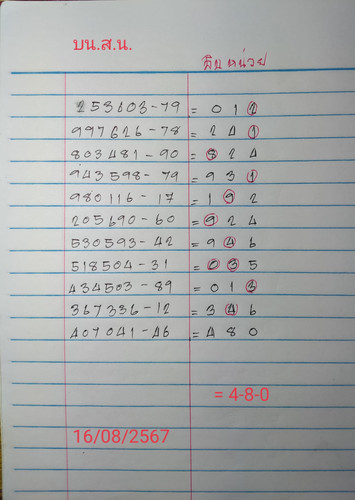 บน.ส.น.
สิบหน่วย
253603-79 = 0 1 2
997626-78 = 2 4 1
803481-90 = 8 2 4
943598-79 = 9 3 1
980116-17 = 1 9 2
205690-60 = 9 2 4
530593-42 = 9 4 6
518504-31 = 0 3 5
434503-89 = 0 1 3
367336-12 = 3 4 6
407041-46 = 4 8 0
= 4-8-0
16/08/2567